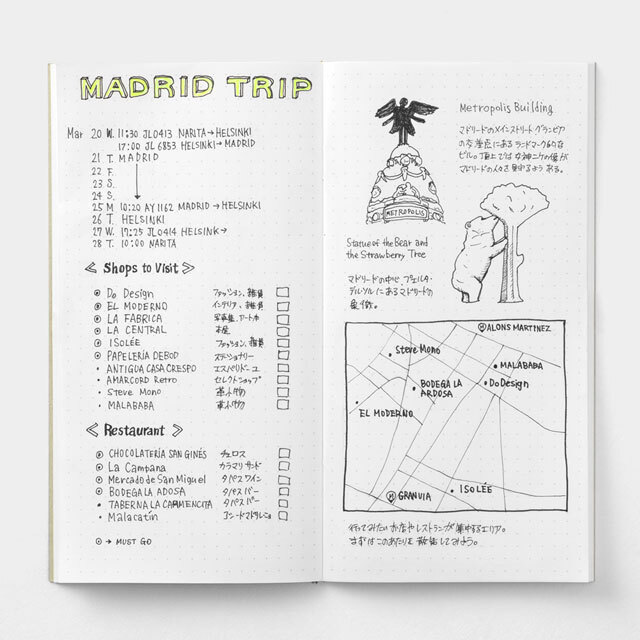 MADRID TRIP
Mar 20 W. 11:30 JL0413 NARITA→HELSINKI
17:00 JL6853 HELSINKI→MADRID
21 T. MADRID
22 F.
23 S.
24 S.
25 M 10:20 AY1162 MADRID→HELSINKI
26 T. HELSINKI
27 W. 17:25 JL0414 HELSINK→
28 T. 10:00 NARITA
≪ Shops to Visit ≫
⊙ Do Design ファッション、雑貨 □
⊙ EL MODERNO インテリア、雑貨 □
⊙ LA FABRICA 写真集、アート本 □
⊙ LA CENTRAL 本屋 □
⊙ ISOLÉE ファッション、雑貨 □
⊙ PAPELERÍA DEBOD ステショナリー □
• ANTIGUA CASA CRESPO エスパドリーユ □
• AMARCORD Retro セレクトショップ □
• Steve Mono 革小物 □
• MALABABA 革小物 □
≪ Restaurant ≫
⊙ CHOCOLATERÍA SAN GINÉS チュロス □
⊙ La Campana カラマリサンド □
⊙ Mercado de San Miguel タパス ワイン □
⊙ BODEGA LA ADOSA タパス バー □
• TABERNA LA CARMENCITA タパス バー □
• Malacatín □
⊙ → MUST GO
Metropolis Building
マドリードのメインストリート グランビア
の交差点にあるランドマーク的な
ビル。頂上では女神ニケの像が
マドリードの人々を見守るようある。
METROPOLIS
Statue of the Bear and
the Strawberry Tree
マドリードの中心、プエルタ・
デル・ソルにあるマドリードの
象徴。
ALONS MARTINEZ
Steve Mono
MALABABA
BODEGA LA
ARDOSA
Do Design
EL MODERNO
ISOLÉE
GRANVIA
行ってみたいお店やレストランが集中するエリア。
まずはこのあたりを散策してみよう。